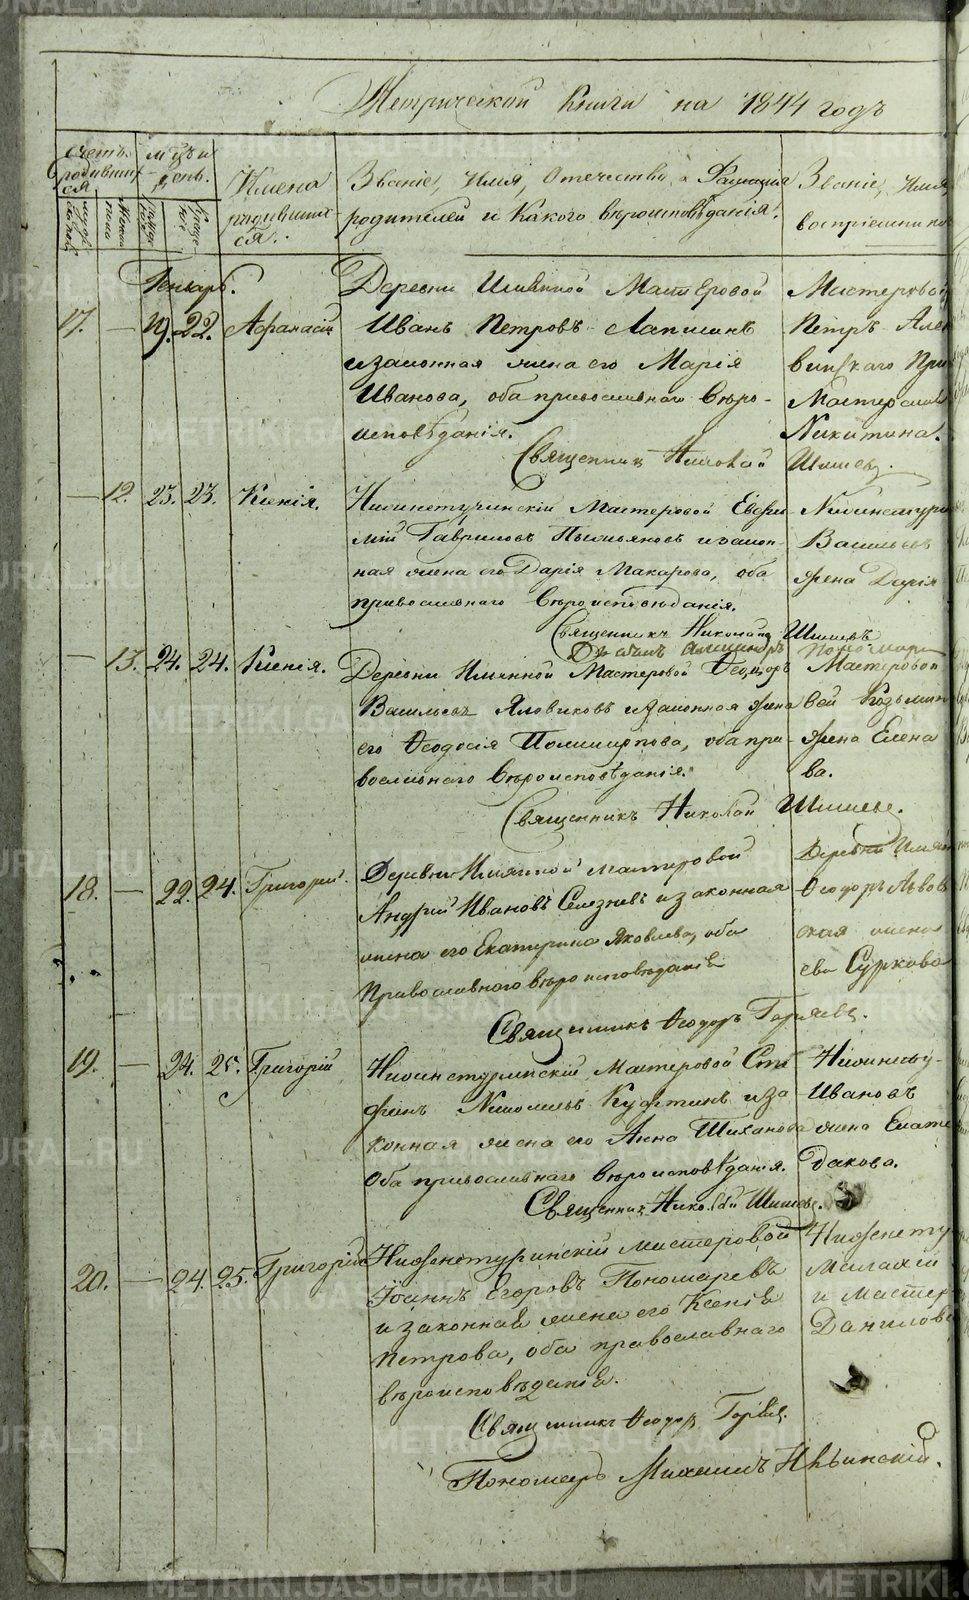 Метрической книги на 1844 годъ
Счетъ родившихся
мужеска
женска
м-цъ и день.
Имена родившихся.
Званіе, Имя, Отечество, и Фамилія родителей и какого вѣроисповѣданія.
Званіе, Имя
воспріемнико
Генварь.
17. — 19. 22. Афанасій
Деревни Мастеровой
Иванъ Петровъ Лапшинъ
и законная жена его Марія
Иванова, оба православнаго вѣро-
исповѣданія.
Священникъ Николай Шишевъ.
Мастеровой
Петръ Але
Мастеровая
Никитина.
— 12. 23. 23. Ксенія.
Нижнетуринскій Мастеровой Евфи-
мій Гавриловъ и закон-
ная жена его Дарія Макарова, оба
православнаго вѣроисповѣданія.
Священникъ Николай Шишевъ
Дьячекъ Пономарь
Нижнетури
Васильевъ
жена Дарія
— 13. 24. 24. Ксенія.
Деревни Мастеровой Ѳеодоръ
Васильевъ и законная жена
его Ѳеодосія оба пра-
вославнаго вѣроисповѣданія.
Священникъ Николай Шишевъ.
Мастеровой
вой Козьмин
жена Елена
ва.
18. — 22. 24. Григорій.
Деревни мастеровой
Андрей Ивановъ Селезневъ и законная
жена его Екатерина Яковлева, оба
Православнаго вѣроисповѣданія
Священникъ Ѳеодоръ Горяевъ.
Деревни
Ѳеодоръ Львов
жена
ева Суркова
19. — 24. 25. Григорій
Нижнетуринскій Мастеровой Сте
фанъ и за
конная жена его Анна Тиханова
Оба православнаго вѣроисповѣданія.
Священникъ Николай Шишевъ.
Нижнету-
Ивановъ
жена Екате
дакова.
20. — 24. 25. Григорій
Нижнетуринскій мастеровой
Іоаннъ Егоровъ Пономаревъ
и законная жена его Ксенія
Петрова, оба православнаго
вѣроисповѣданія.
Священникъ Ѳеодоръ Горяевъ.
Пономарь Михаилъ Ильинскій.
Нижнету
Малахій
и мастер
Данилова
METRIKI.GASO-URAL.RU